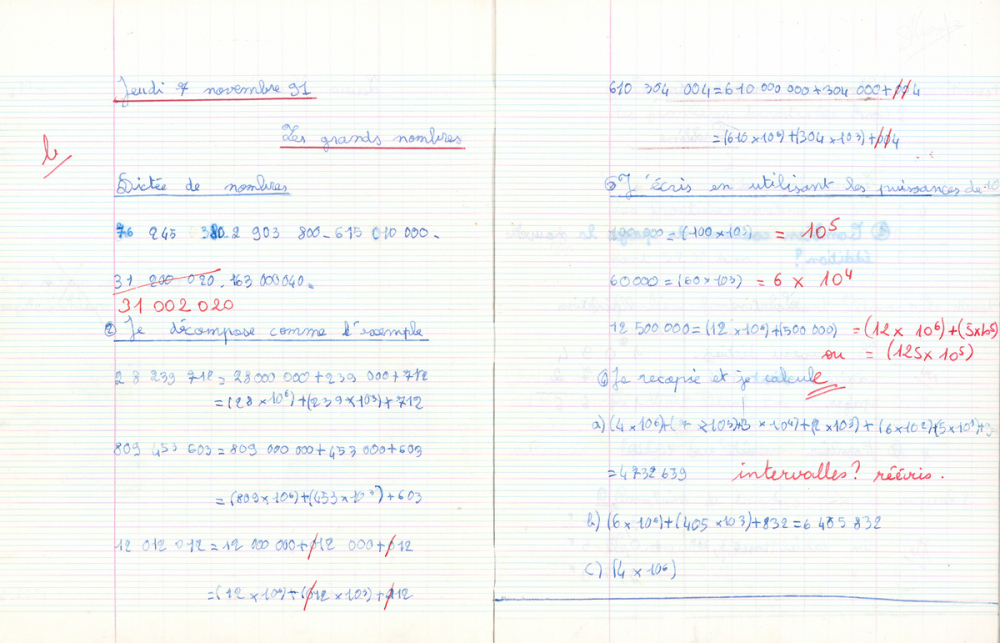 Jeudi 7 novembre 91
Les grands nombres
b
Dictée de nombres
76 245 380 - 2 903 800 - 615 010 000 -
31 200 020 - 163 000 040 -
31 002 020
② Je décompose comme l'exemple
28 239 712 = 28 000 000 + 239 000 + 712
= (28 × 10⁶) + (239 × 10³) + 712
809 453 603 = 809 000 000 + 453 000 + 603
= (809 × 10⁶) + (453 × 10³) + 603
12 012 012 = 12 000 000 + 012 000 + 012
= (12 × 10⁶) + (012 × 10³) + 012
610 304 004 = 610 000 000 + 304 000 + 004
= (610 × 10⁶) + (304 × 10³) + 004
J'écris en utilisant les puissances de 10
000 = (100 × 10³) = 10⁵
60 000 = (60 × 10³) = 6 × 10⁴
12 500 000 = (12 × 10⁶) + (500 000) = (12 × 10⁶) + (5 × 10⁵)
ou = (125 × 10⁵)
Je recopie et je calcule
a) (4 × 10⁶) + (7 × 10⁵) + (3 × 10⁴) + (2 × 10³) + (6 × 10²) + (5 × 10¹) +
= 4 732 639 intervalles ? réécris.
b) (6 × 10⁶) + (405 × 10³) + 832 = 6 405 832
c) (4 × 10⁶)